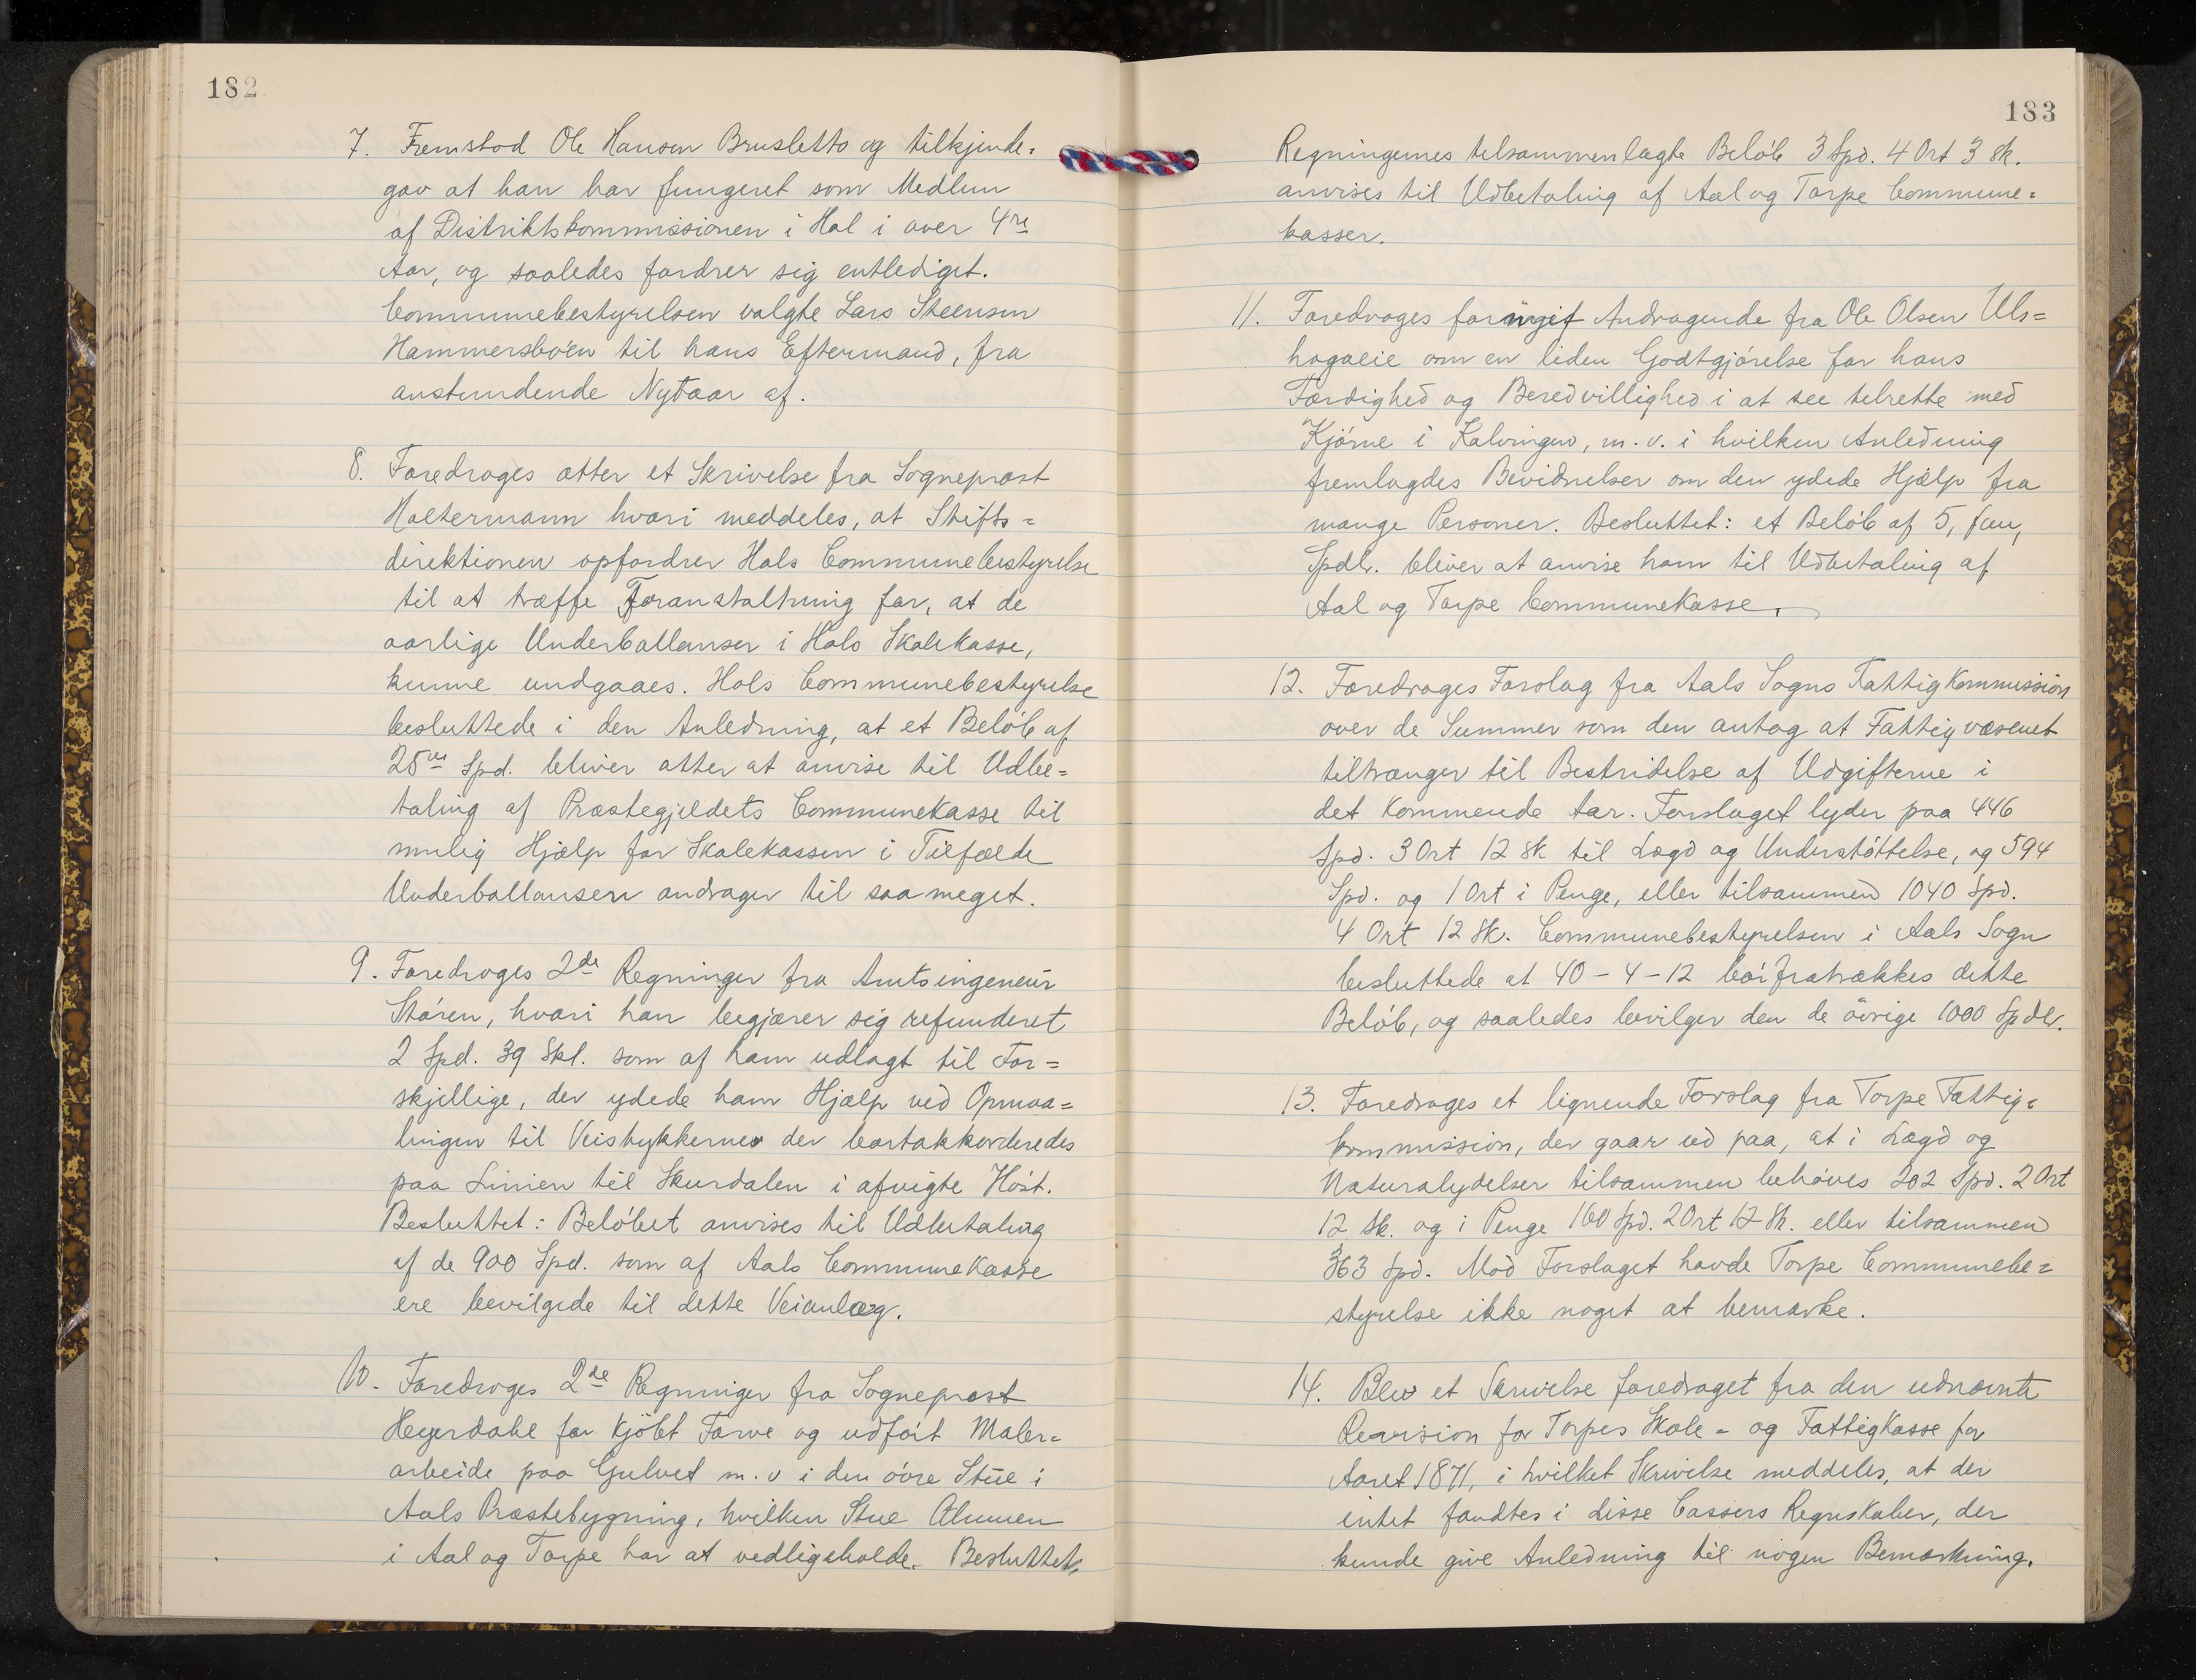 182
7. Fremstod Ole Hansen Brusletto og tilkjende=
gav at han har fungeret som Medlem
af Distriktskommissionen i Hol i over 4re
Aar, og saaledes fordrer sig entlediget.
Communebestyrelsen valgte Lars Steensen
Hammersbøen til hans Eftermand, fra
anstundende Nytaar af.
8. Foredroges atter et Skrivelse fra Sogneprest
Holtermann hvori meddeles, at Stifts=
direktionen opfordrer Hols Communebestyrelse
til at træffe Foranstaltning for, at de
aarlige Underballanser i Hols Skolekasse,
kunne undgaaes. Hols Communebestyrelse
besluttede i den Anledning, at et Beløb af
25ve Spd. bliver atter at anvise til Udbe=
taling af Præstegjeldets Communekasse til
mulig Hjælp for Skolekassen i Tilfælde
Underballansen andrager til saa meget.
9. Foredroges 2de Regninger fra Amtsingeneur
Støren, hvori han begjærer sig refunderet
2 Spd. 39 Skl. som af ham udlagt til For=
skjellige, der ydede ham Hjælp ved Opmaa=
lingen til Veistykkerne der bortakkorderedes
paa Linien til Skurdalen i afvigte Høst.
Besluttet: Beløbet anvises til Udbetaling
af de 900 Spd. som af Aals Communekasse
ere bevilgede til dette Veianlæg.
10. Foredroges 2de Regninger fra Sogneprest
Heyerdahl for kjøbt Farve og udført Maler=
arbeide paa Gulvet m.v i den øvre Stue i
Aals Præstebygning, hvilken Stue Almuen
i Aal og Torpe har at vedligeholde. Besluttet,
183
Regningernes tilsammenlagte Beløb 3 Spd. 4 Ort 3 sk.
anvises til Udbetaling af Aal og Torpe Commune=
kasser.
11. Foredroges fornyet Andragende fra Ole Olsen Uls=
hagaeie om en liden Godtgjørelse for hans
Færdighed og Beredvillighed i at see tilrette med
Kjørne i Kalvingen, m.v. i hvilken Anledning
fremlagdes Bevidnelser om den ydede Hjælp fra
mange Personer. Besluttet: et Beløb af 5, fem,
Spdl. bliver at anvise ham til Udbetaling af
Aal og Torpe Communekasse.
12. Foredroges Forslag fra Aals Sogns Fattigkommission
over de Summer som den antog at Fattigvæsenet
tiltrænger til Bestridelse af Udgifterne i
det kommende Aar. Forslaget lyder paa 446
Spd. 3 Ort 12 sk til Lægd og Understøttelse, og 594
Spd. og 1 Ort i Penge, eller tilsammen 1040 Spd.
4 Ort 12 Sk. Communebestyrelsen i Aals Sogn
besluttede at 40-4-12 bør fratrækkes dette
Beløb, og saaledes bevilger den de øvrige 1000 Spdlr.
13. Foredroges et lignende Forslag fra Torpe Fattig=
kommission, der gaar ud paa, at i Lægd og
Naturalydelser tilsammen behøves 202 Spd. 2 Ort
12 sk. og i Penge 160 Spd. 2 Ort 12 Sk. eller tilsammen
363 Spd. Mod Forslaget havde Torpe Communebe=
styrelse ikke noget at bemærke.
14. Blev et Skrivelse foredraget fra den udnævnte
Revision for Torpes Skole- og Fattigkasse for
Aaret 1871, i hvilket Skrivelse meddeles, at der
intet fandtes i disse Cassers Regnskaber, der
kunde give Anledning til nogen Bemærkning.